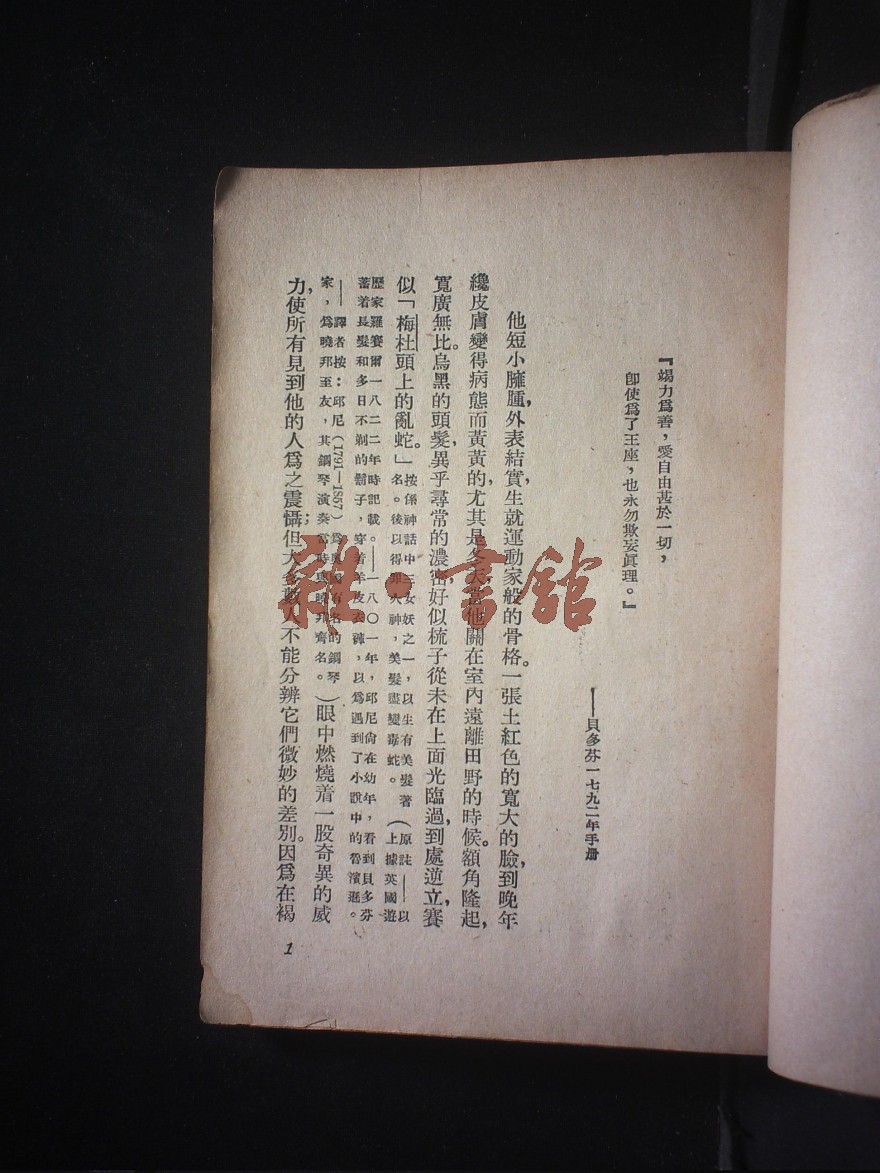 『竭力爲善，愛自由甚於一切，
卽使爲了王座，也永勿欺妄眞理。』
——貝多芬一七九二年手册
他短小臃腫，外表結實，生就運動家般的骨格。一張土紅色的寬大的臉，到晚年
纔皮膚變得病態而黃黃的，尤其是冬天，當他關在室內遠離田野的時候。額角隆起，
寬廣無比。烏黑的頭髮，異乎尋常的濃密，好似梳子從未在上面光臨過，到處逆立，賽
似「梅杜頭上的亂蛇。」
按係神話中三女妖之一，以生有美髮著
名。後以得罪火神，美髮盡變毒蛇。
（原註——以
上據英國遊
歷家羅賽爾一八二二年時記載。——一八〇一年，邱尼尙在幼年，看到貝多芬
蓄着長髮和多日不剃的鬍子，穿着羊皮衣褲，以爲遇到了小說中的魯濱遜。
——譯者按：邱尼（1791—1857）爲奧國有名的鋼琴
家，爲曉邦至友，其鋼琴演奏當時與曉邦齊名。）
眼中燃燒着一股奇異的威
力，使所有見到他的人爲之震懾；但大多數人不能分辨它們微妙的差別。因爲在褐
1
雜·書館